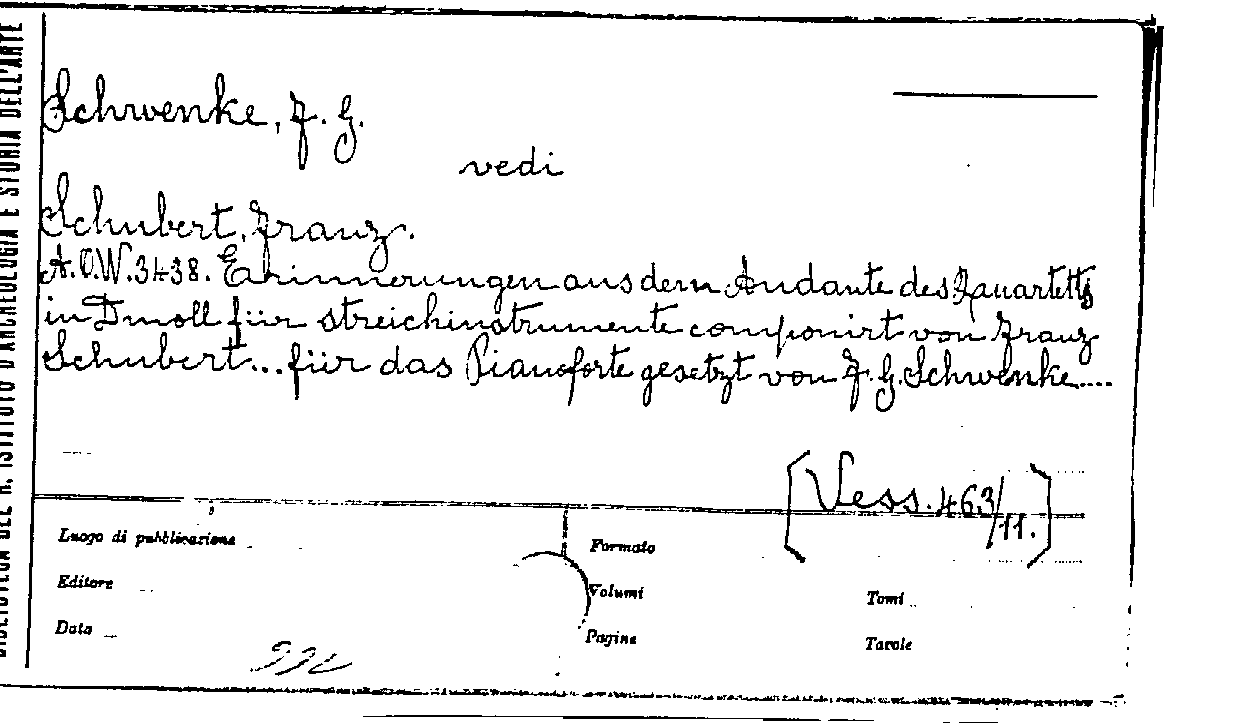 BIBLIOTECA DEL R. ISTITUTO D'ARCHEOLOGIA E STORIA DELL'ARTE
Schwenke, F. G.
vedi
Schubert, Franz.
A.O.W.3438. Erinnerungen aus dem Andante des Quartetts
in Dmoll für streichinstrumente componirt von Franz
Schubert... für das Pianoforte gesetzt von F. G. Schwenke....
[Vess. 463/11.]
Luogo di pubblicazione
Formato
Editore
Volumi
Tomi
Data
Pagine
Tavole